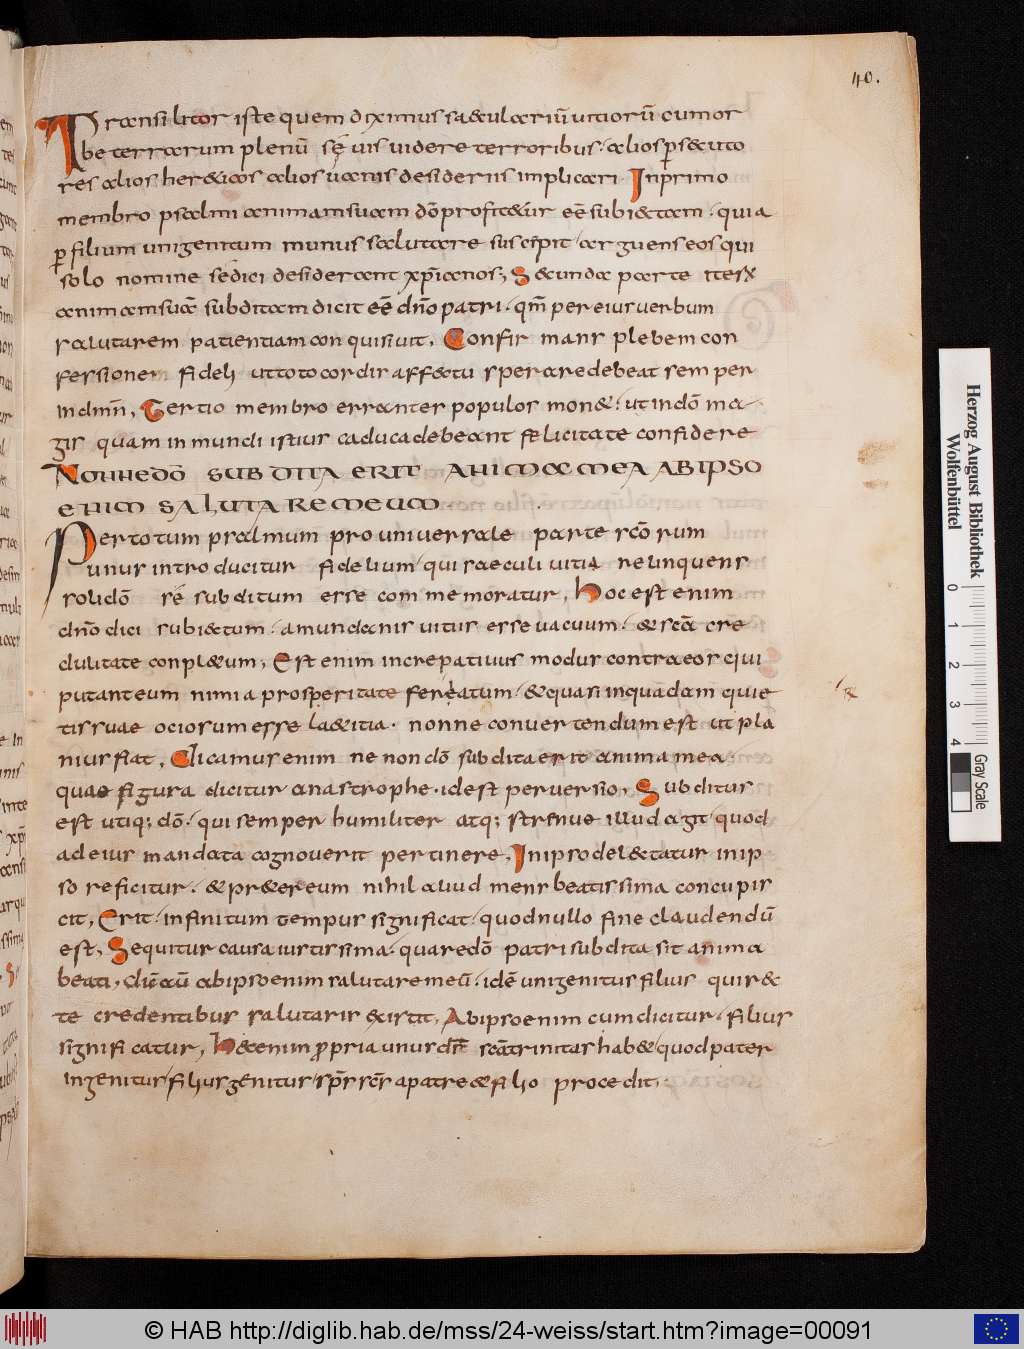 40.
Transilitor iste quem diximus saeculariũ uitiorũ cumor
be terrarum plenũ sę uis uidere terroribus. alios p̱s&uto
res alios her&icos alios uanis desideriis implicari Inprimo
membro psalmi animam suam dõ profit&ur eẽ subi&tam. quia
p̱ filium unigenitum munus salutare suscẽpit. arguens eos qui
solo nomine se dici desiderant xp̃ianos; S&cunda parte
animam suã subditam dicit eẽ dño patri. qm̃ per eius verbum
salutarem patientiam conquisiuit. Confir mans plebem con
fessione fideli ut toto cordis aff&tu sperare debeat semper
in dmñ. Tertio membro errantes populos mon&. ut in dõ ma
gis quam in mundi istius caduca debeant felicitate confidere
NONNE DÕ SUBDITA ERIT ANIMA MEA AB IPSO
ENIM SALUTARE MEUM.
Per totum psalmum pro universale parte scõrum
unus introducitur fidelium. qui saeculi uitia relinquens
solidõ sẽ subditum esse commemoratur. Hoc est enim
dño dici subi&tum. a mundanis uitiis esse vacuum. & scã cre
dulitate conpl&um; Est enim increpativus modus contra eos qui
putant eum nimia prosperitate fereatum. & quasi in quadam quie
tis suae ociosum esse la&itia. nonne convertendum est ut pla
nius fiat. Dicamus enim ne non dõ subdita erit anima mea.
quae figura dicitur anastrophe. id est perversio. Subditus
est utiq; dõ. qui semper humiliter atq; strenue illud agit. quod
ad eius mandata cognoverit pertinere. In ipso del&tatur in ip
so reficitur. & pr&er eum nihil aliud mens beatissima concupis
cit. Erit. infinitum tempus significat. quod nullo fine claudendũ
est. Sequitur causa iustissima. quare dõ patri subdita sit anima
beati. ab ipso enim salutare meũ. idẽ unigenitus filius quir&
te credentibus salutaris existit. Ab ipso enim cum dicitur. filius
significatur. H&enim p̱pria unus dš scã trinitas hab& quod pater
ingenitus filius genitus sp̃s sc̃s a patre & filio procedit.
Herzog August Bibliothek
Wolfenbüttel
0 1 2 3 4
Gray Scale
© HAB http://diglib.hab.de/mss/24-weiss/start.htm?image=00091